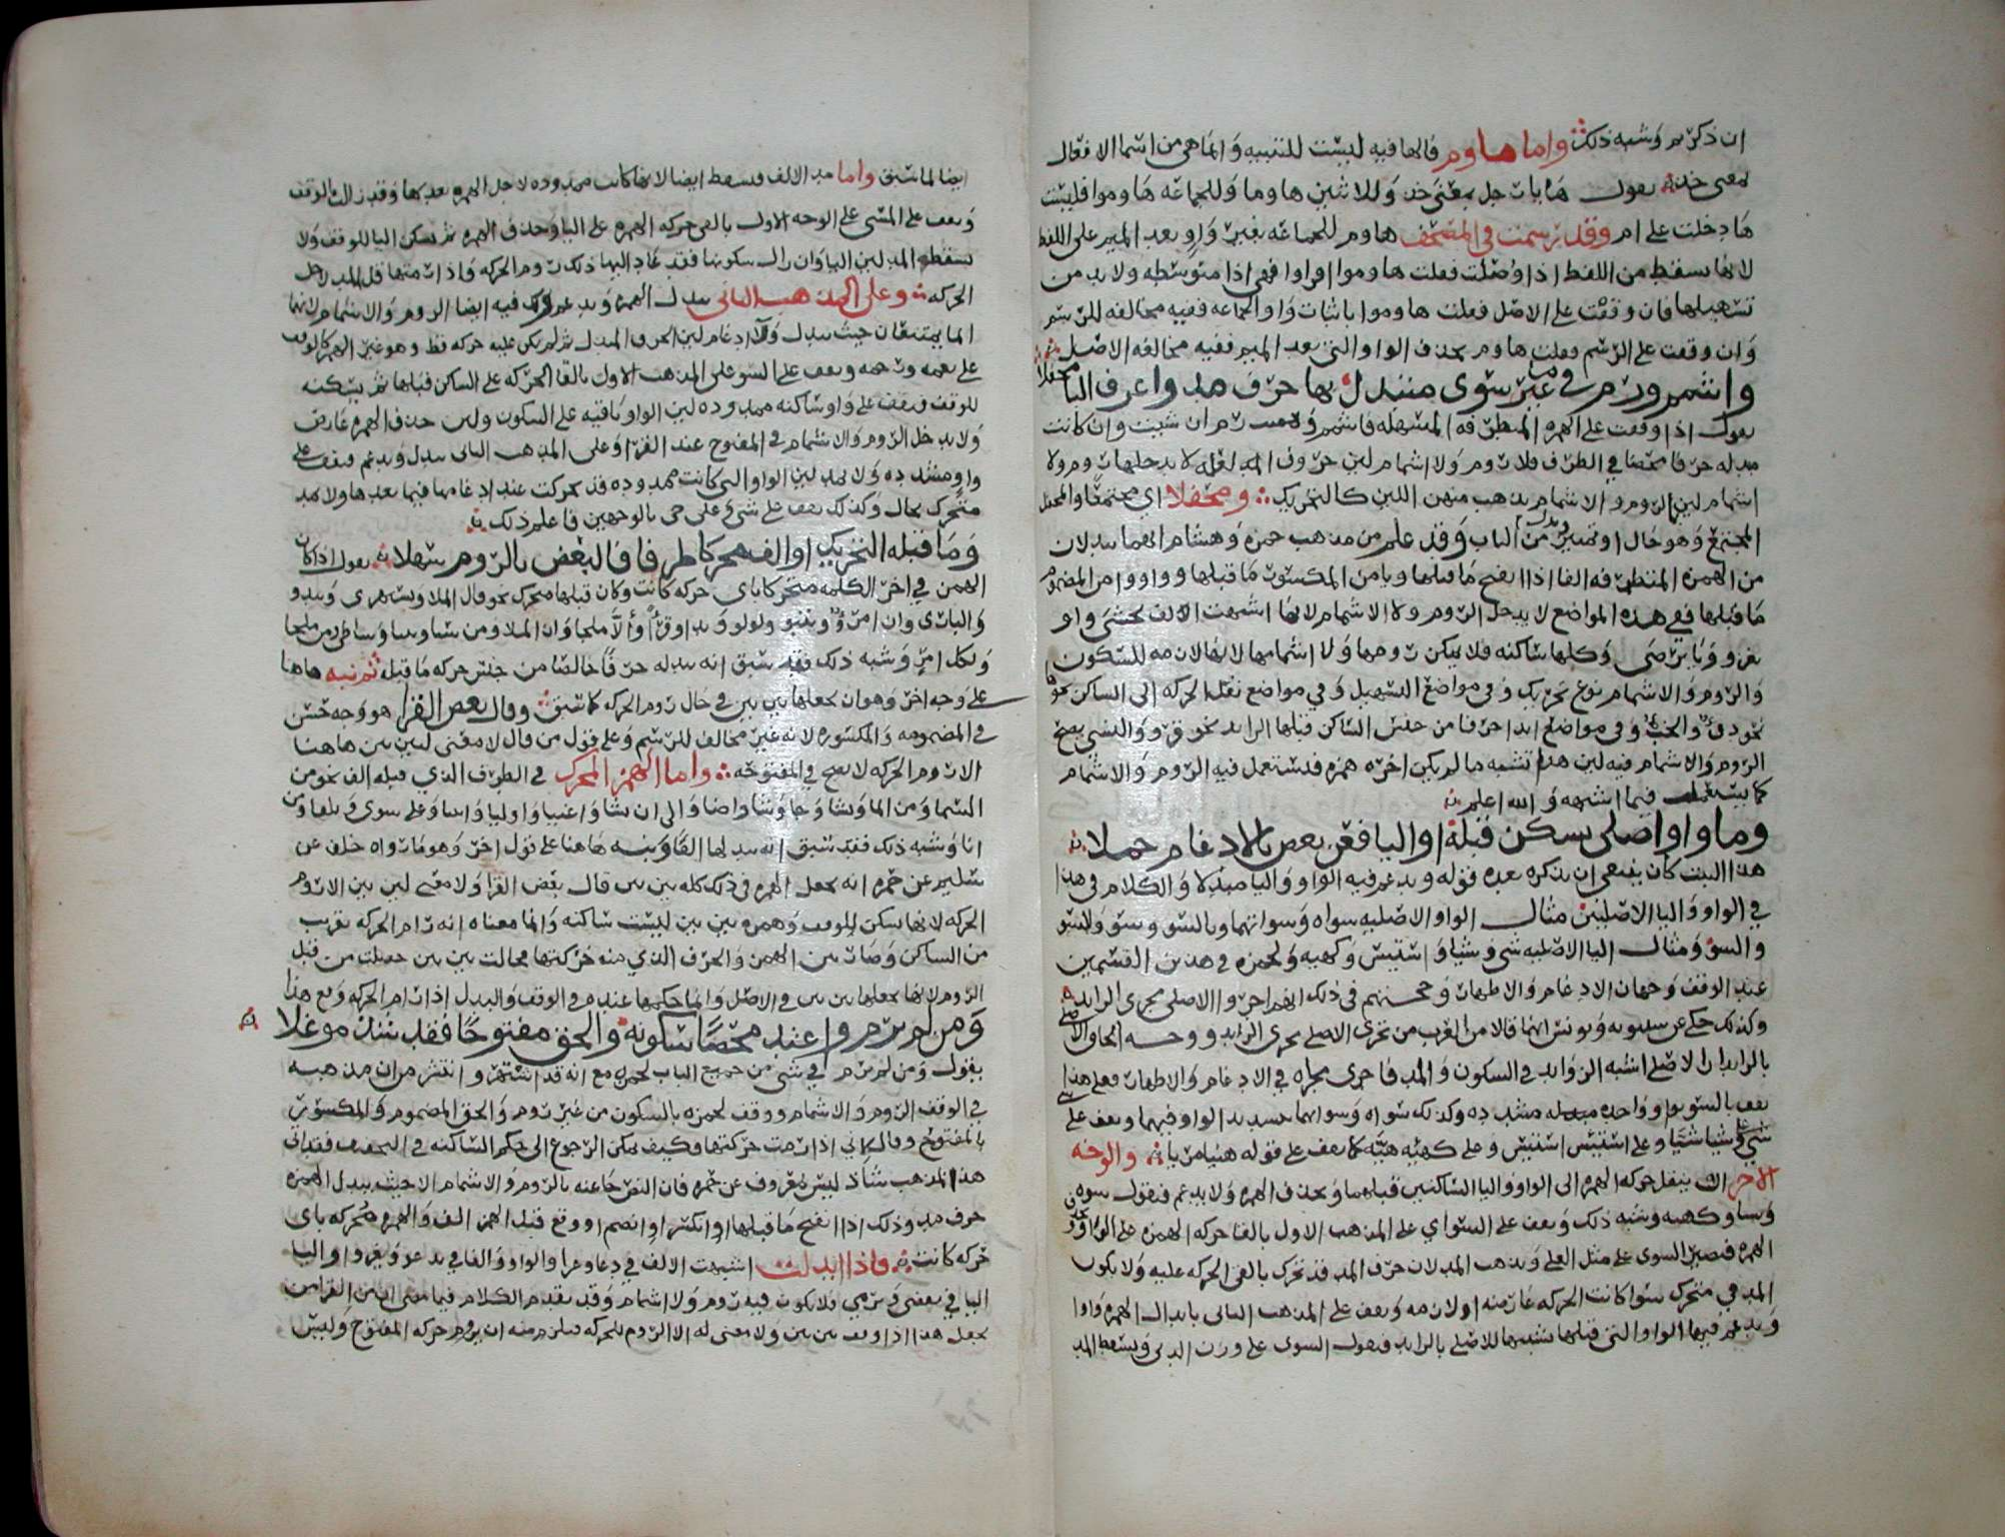 ان ذكرتم وشبه ذلك واما هاوم فالها فيه ليست للتنبيه وانما هي من اسما الافعال
لمعنى خذ يقول هاء يا رجل بمعنى خذ وللاثنين هاوما وللجماعه هاوموا فليست
ها دخلت على ام وقد رسمت في المصحف هاوم للجماعه بغير واو بعد الميم على اللفظ
لانها تسقط من اللفظ اذا وصلت فقلت هاوموا اقراوا فهي اذا متوسطه ولا بد من
تسهيلها فان وقفت على الاصل فقلت هاوموا باثبات واو الجماعه ففيه مخالفه للرسم
وان وقفت على الرسم فقلت هاوم بحذف الواو التي بعد الميم ففيه مخالفه الاصل
واشمم ورم في غير سوى متبدل بها حرف مد واعرف البا محفلا
يقول اذا وقفت على الهمزه المتطرفه المسهله فاشمم ورم ان شيت وان كانت
مبدله حرفا محضا في الطرف فلا روم ولا اشمام لين حروف المد لا يدخلها روم ولا
اشمام لين الروم والاشمام يذهب منهن اللين كالتحريك ومحفلا اي مجتمعا والمحفل
المجتمع وهو حال من الباب وقد علم من مذهب حمزه وهشام انهما يبدلان
من الهمزه المتطرفه الفا اذا انفتح ما قبلها ويا من المكسور ما قبلها وواوا من المضموم
ما قبلها ففي هذه المواضع لا يدخل الروم ولا الاشمام لانها اشبهت الالف يخشى واو
يغزو ويا يرمي وكلها ساكنه فلا يمكن رومها ولا اشمامها لانها لازمه للسكون
والروم والاشمام نوع تحريك وفي مواضع التسهيل وفي مواضع نقل الحركه الى الساكن نحو
نحو دف والخب وفي مواضع ابدا حرفا من جنس الساكن قبلها الزايد نحو قرو والنسي يصح
الروم والاشمام فيه لين هذا تشبه ما لم يكن اخره همزه فيستعمل فيه الروم والاشمام
كما يستعمل فيما اشبهه والله اعلم
وما واو اصلي تسكن قبله او اليا فعن بعض بالادغام حملا
هذا البيت كان ينبغي ان يذكره بعد قوله ويدغم فيه الواو واليا مبدلا والكلام في هذا
في الواو واليا الاصليين مثال الواو الاصليه سواه وسواتهما وبالسو وسو والسو
والسو ومثال اليا الاصليه شي وشيا واستيس وكهيه ولحمزه في هذين القسمين
عند الوقف وجهان الادغام والاظهار وحجتهم في ذلك انهم اجروا الاصلي مجرى الزايد
وكذلك حكى عن سيبويه ويونس انهما قالا من العرب من يجري الاصلي مجرى الزايد ووجه الحاق الاصلي
بالزايد ان الاصلي اشبه الزوايد في السكون والمد فاجرى مجراه في الادغام والاظهار فعلى هذا
يقف بالسو بواو واحده مبدله مشدده وكذلك سواه وسواتهما بتشديد الواو فيهما ويقف على
شي وشيا شيا وعلى استيس استيس وعلى كهيه هيه كما يقف على قوله هنيا مريا والوجه
الاخر ان ينقل حركه الهمزه الى الواو واليا الساكنين قبلهما ويحذف الهمزه ولا يدغم فيقول سوه
وشيا وكهيه وشبه ذلك ويقف على السواي على المذهب الاول بالقا حركه الهمزه على الواو
الهمزه فيصير السوى على مثل العلى ويذهب المد لان حرف المد قد تحرك بالقى الحركه عليه ولا يكون
المد في متحرك سوا كانت الحركه عارضه او لازمه ويقف على المذهب الثاني بابدال الهمزه واوا
ويدغم فيها الواو التي قبلها تشبيها للاصلي بالزايد فيقول السوى على وزن ويسقط المد
ايضا لما سبق واما مد الالف فيسقط ايضا لانها كانت ممدوده لاجل الهمزه بعدها وقد زالت الوقف
ويقف على المسي على الوجه الاول بالقى حركه الهمزه على اليا وحذف الهمزه ثم تسكن اليا للوقف ولا
يسقط المد لين اليا وان زال سكونها فقد عاد اليها ذلك روم الحركه واذا رمتها قل المد لاجل
الحركه وعلى المذهب الثاني يبدل الهمزه ويدغم وفيه ايضا الروم والاشمام لانهما
انما يمتنعان حيث يبدل ولا ادغام لين الحرف المبدل ثم لم يكن عليه حركه قط وهو غير الهمز كالوقف
على نعمه ورحمه ويقف على السو على المذهب الاول بالقا الحركه على الساكن قبلها ثم يسكنه
للوقف فيقف على واو ساكنه ممدوده لين الواو باقيه على السكون ولين حذف الهمزه عارض
ولا يدخل الروم والاشمام في المفتوح عند القرا وعلى المذهب الثاني يبدل ويدغم فيقف على
واو مشدده ولا يمد لين الواو التي كانت ممدوده قد تحركت عند ادغامها فيما بعدها ولا يمد
متحرك بحال وكذلك يقف على شي وعلى حي بالوجهين فاعلم ذلك
وما قبله التحريك او الف محركا طرفا فالبعض بالروم سهلا يقول اذا كان
الهمز في اخر الكلمه متحركا باي حركه كانت وكان قبلها متحرك نحو قال الملا ويستهزي ويبدو
والباري وان امرؤ ولولو وان الملا ومن سبا وبنبا وشاطي من ملجا
ولكل امري وشبه ذلك فقد سبق انه يبدله حرفا خالصا من جنس حركه ما قبله ثم نبه هاهنا
على وجه اخر وهو ان يجعلها بين بين في حال روم الحركه كما سبق وقال بعض القرا هو وجه حسن
في المضمومه والمكسوره لانه غير مخالف للرسم وعلى قول من قال لا معنى لبين بين هاهنا
الا روم الحركه لا يصح في المفتوحه واما الهمز المحرك في الطرف الذي قبله الف نحو من
السما ومن الما ويشا وجا وشا واضا والى ان نشا واغنيا واوليا وابنا وعلى سوى وتلقا ومن
انا وشبه ذلك فقد سبق انه يبدلها الفا ونبه هاهنا على قول اخر وهو ما رواه خلف عن
سليم عن حمزه انه يجعل الهمزه في ذلك كله بين بين قال بعض القرا ولا معنى لبين بين الا روم
الحركه لانها تسكن للوقف وهمزه بين بين ليست ساكنه وانما معناه انه رام الحركه تقرب
من الساكن وصار بين الهمز والحرف الذي منه حركتها فجالت بين بين حصلت من قبل
الروم لانها يجعلها بين بين في الاصل وانما حكمها عندهم في الوقف والبدل اذا رام الحركه ومع هذا
ومن لم يرم واعتد محضا سكونه والحق مفتوحا فقد شذ موغلا
يقول ومن لم يرم في شي من جميع الباب لحمزه مع انه قد اشتهر وانتشر من ان مذهبه
في الوقف الروم والاشمام ووقف لحمزه بالسكون من غير روم والحق المضموم والمكسور
بالمفتوح وقال اني اذا رمت حركتها وكيف يمكن الرجوع الى حكم الساكنه في التخفيف فقد اتى
هذا المذهب شاذ ليس بمعروف عن حمزه فان النص جا عنه بالروم والاشمام الا حيث يبدل الهمزه
حرف مد وذلك اذا انفتح ما قبلها او انكسر او انضم او وقع قبل الهمز الف والهمزه محركه باي
حركه كانت فاذا ابدلت اشبهت الالف في دعا وعرا والواو والفا في يدعو ويغزو او اليا
اليا في يقضي ويرمي فلا يكون فيه روم ولا اشمام وقد تقدم الكلام فيما مضى ان من القرا من
يجعل هذا اذا وقف بين بين ولا معنى له الا الروم للحركه فيلزم منه ان يروم حركه المفتوح وليس